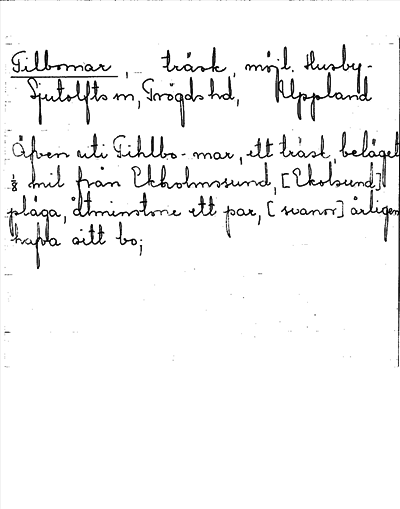 Tilbomar, träsk, möjl. Husby-
Sjutolfts sn, Trögds hd, Uppland
Äfven uti Tihlbo-mar, ett träsk, beläget
⅛ mil från Ekholmssund, [Ekolsund]
pläga, åtminstone ett par, [svanor] årligen
hafva sitt bo;